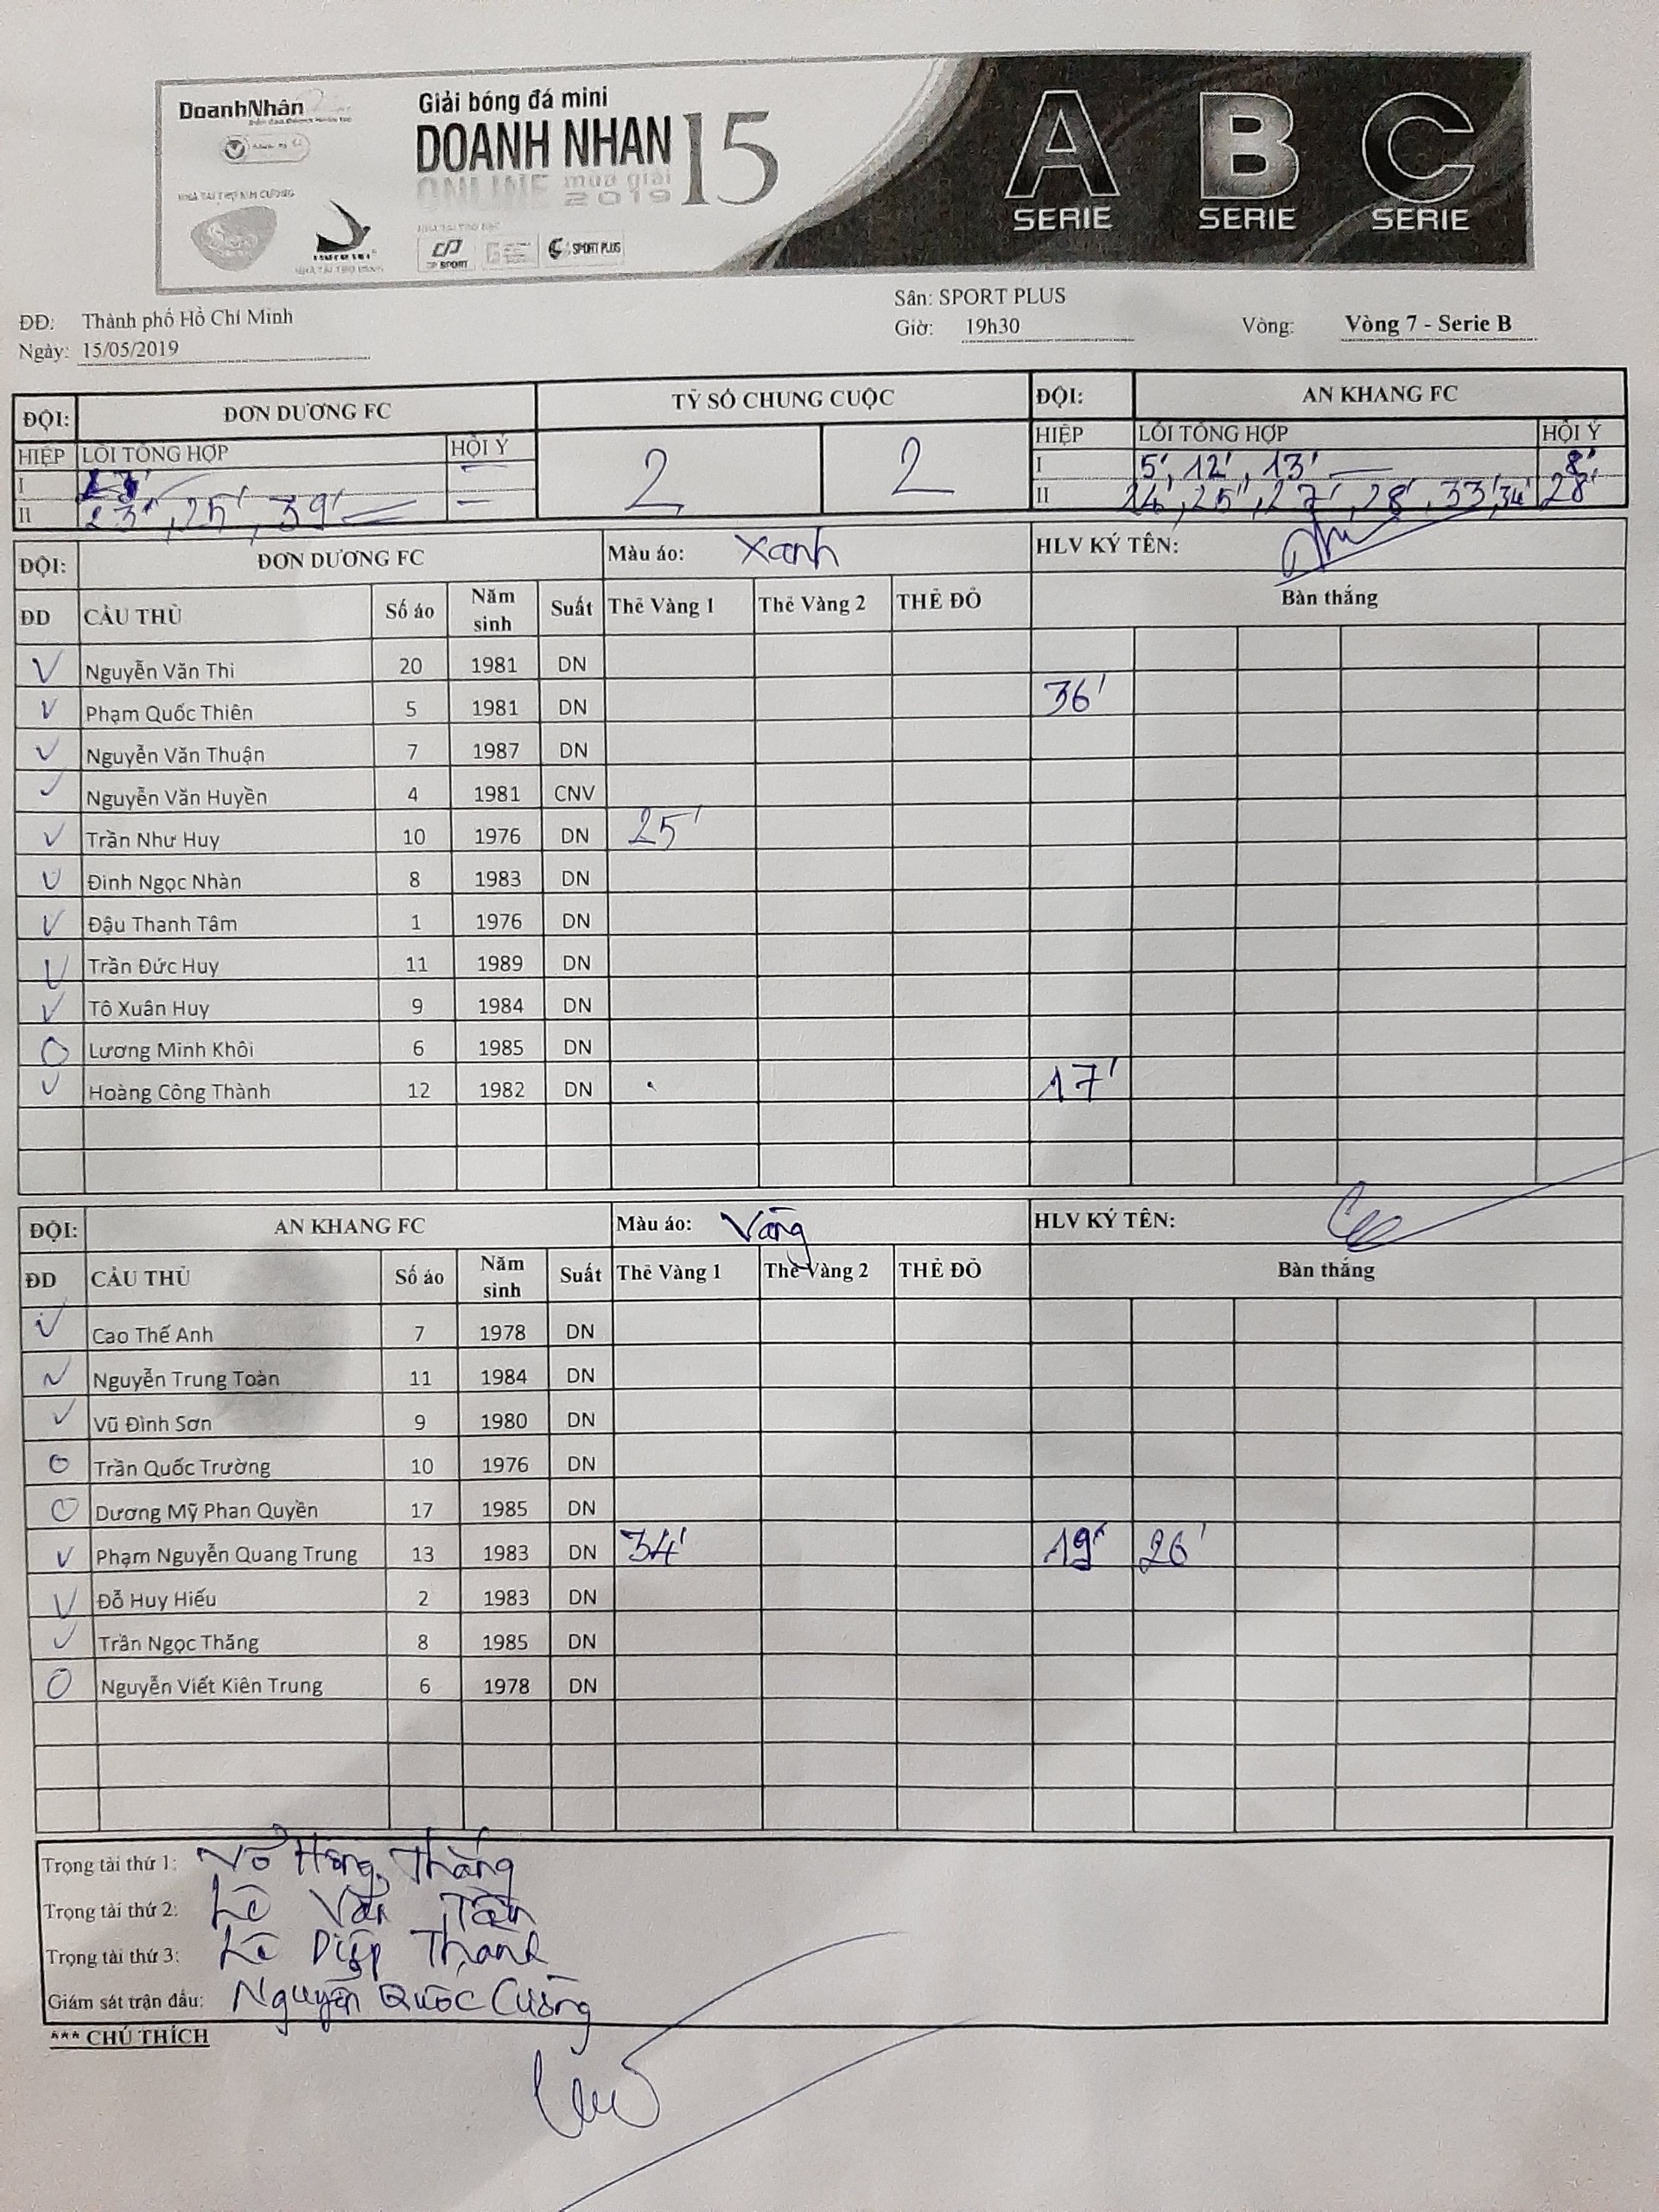 DoanhNhân
Giải bóng đá mini
DOANH NHAN 15
ONLINE mùa giải
2019
A B C
SERIE SERIE SERIE
NHÀ TÀI TRỢ KIM CƯƠNG
SPORT SPORT PLUS
ĐĐ: Thành phố Hồ Chí Minh Sân: SPORT PLUS
Ngày: 15/05/2019 Giờ: 19h30 Vòng: Vòng 7 - Serie B
ĐỘI: ĐƠN DƯƠNG FC TỶ SỐ CHUNG CUỘC ĐỘI: AN KHANG FC
HIỆP LỖI TỔNG HỢP HỘI Ý 2 2 HIỆP LỖI TỔNG HỢP HỘI Ý
I – I 5', 12', 13' 8'
II 23', 25', 39' – II 24', 25', 27', 28', 33', 34' 28'
ĐỘI: ĐƠN DƯƠNG FC Màu áo: Xanh HLV KÝ TÊN:
ĐD CẦU THỦ Số áo Năm sinh Suất Thẻ Vàng 1 Thẻ Vàng 2 THẺ ĐỎ Bàn thắng
V Nguyễn Văn Thi 20 1981 DN
V Phạm Quốc Thiên 5 1981 DN 36'
V Nguyễn Văn Thuận 7 1987 DN
V Nguyễn Văn Huyền 4 1981 CNV
V Trần Như Huy 10 1976 DN 25'
V Đinh Ngọc Nhàn 8 1983 DN
V Đậu Thanh Tâm 1 1976 DN
V Trần Đức Huy 11 1989 DN
V Tô Xuân Huy 9 1984 DN
O Lương Minh Khôi 6 1985 DN
V Hoàng Công Thành 12 1982 DN 17'
ĐỘI: AN KHANG FC Màu áo: Vàng HLV KÝ TÊN:
ĐD CẦU THỦ Số áo Năm sinh Suất Thẻ Vàng 1 Thẻ Vàng 2 THẺ ĐỎ Bàn thắng
V Cao Thế Anh 7 1978 DN
V Nguyễn Trung Toàn 11 1984 DN
V Vũ Đình Sơn 9 1980 DN
O Trần Quốc Trường 10 1976 DN
O Dương Mỹ Phan Quyền 17 1985 DN
V Phạm Nguyễn Quang Trung 13 1983 DN 34' 19' 26'
V Đỗ Huy Hiếu 2 1983 DN
V Trần Ngọc Thăng 8 1985 DN
O Nguyễn Viết Kiên Trung 6 1978 DN
Trọng tài thứ 1: Võ Hồng Thắng
Trọng tài thứ 2: Lê Văn Tần
Trọng tài thứ 3: Lê Diệp Thành
Giám sát trận đấu: Nguyễn Quốc Cường
*** CHÚ THÍCH